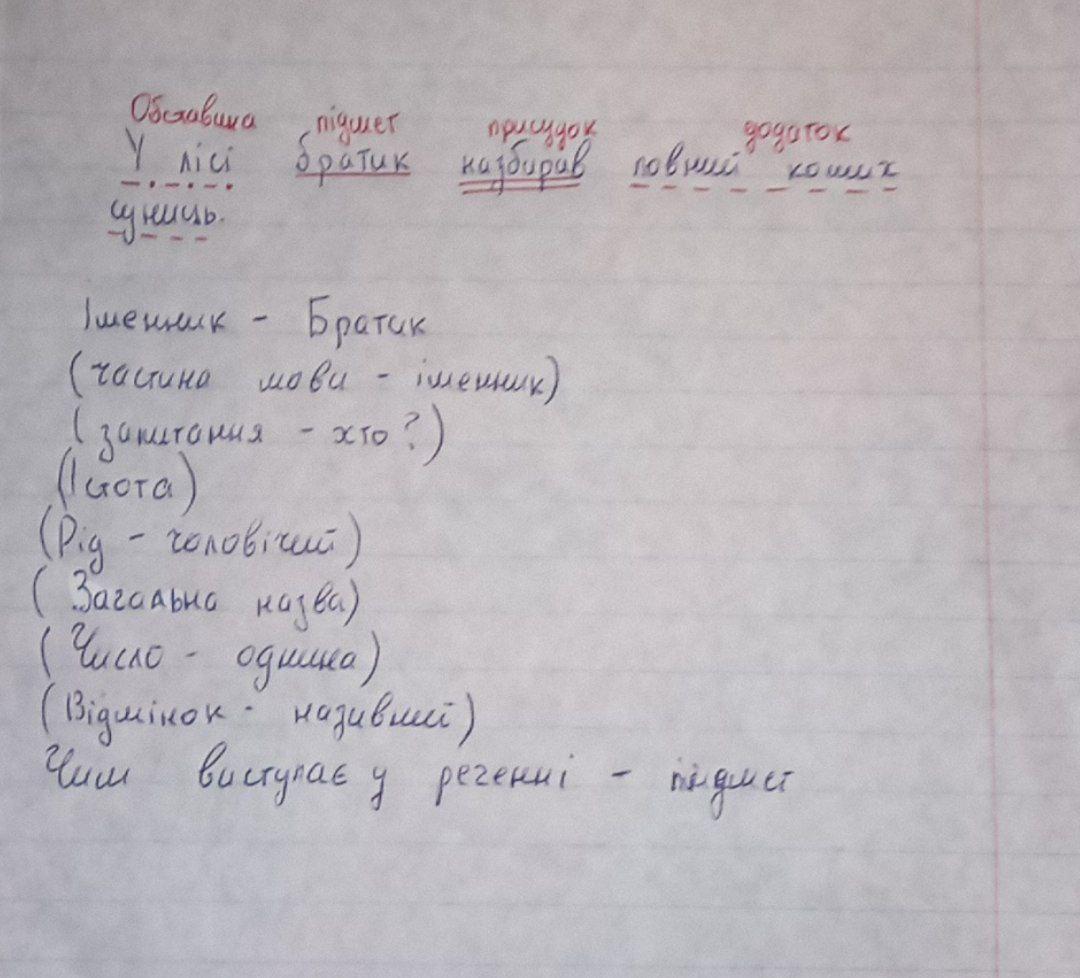 Обставина підмет присудок додаток
У лісі братик назбирав повний коших
суниць.
Іменник - Братик
(частина мови - іменник)
(запитання - хто?)
(Істота)
(Рід - чоловічий)
(Загальна назва)
(Число - однина)
(Відмінок - називний)
Чим виступає у реченні - підмет